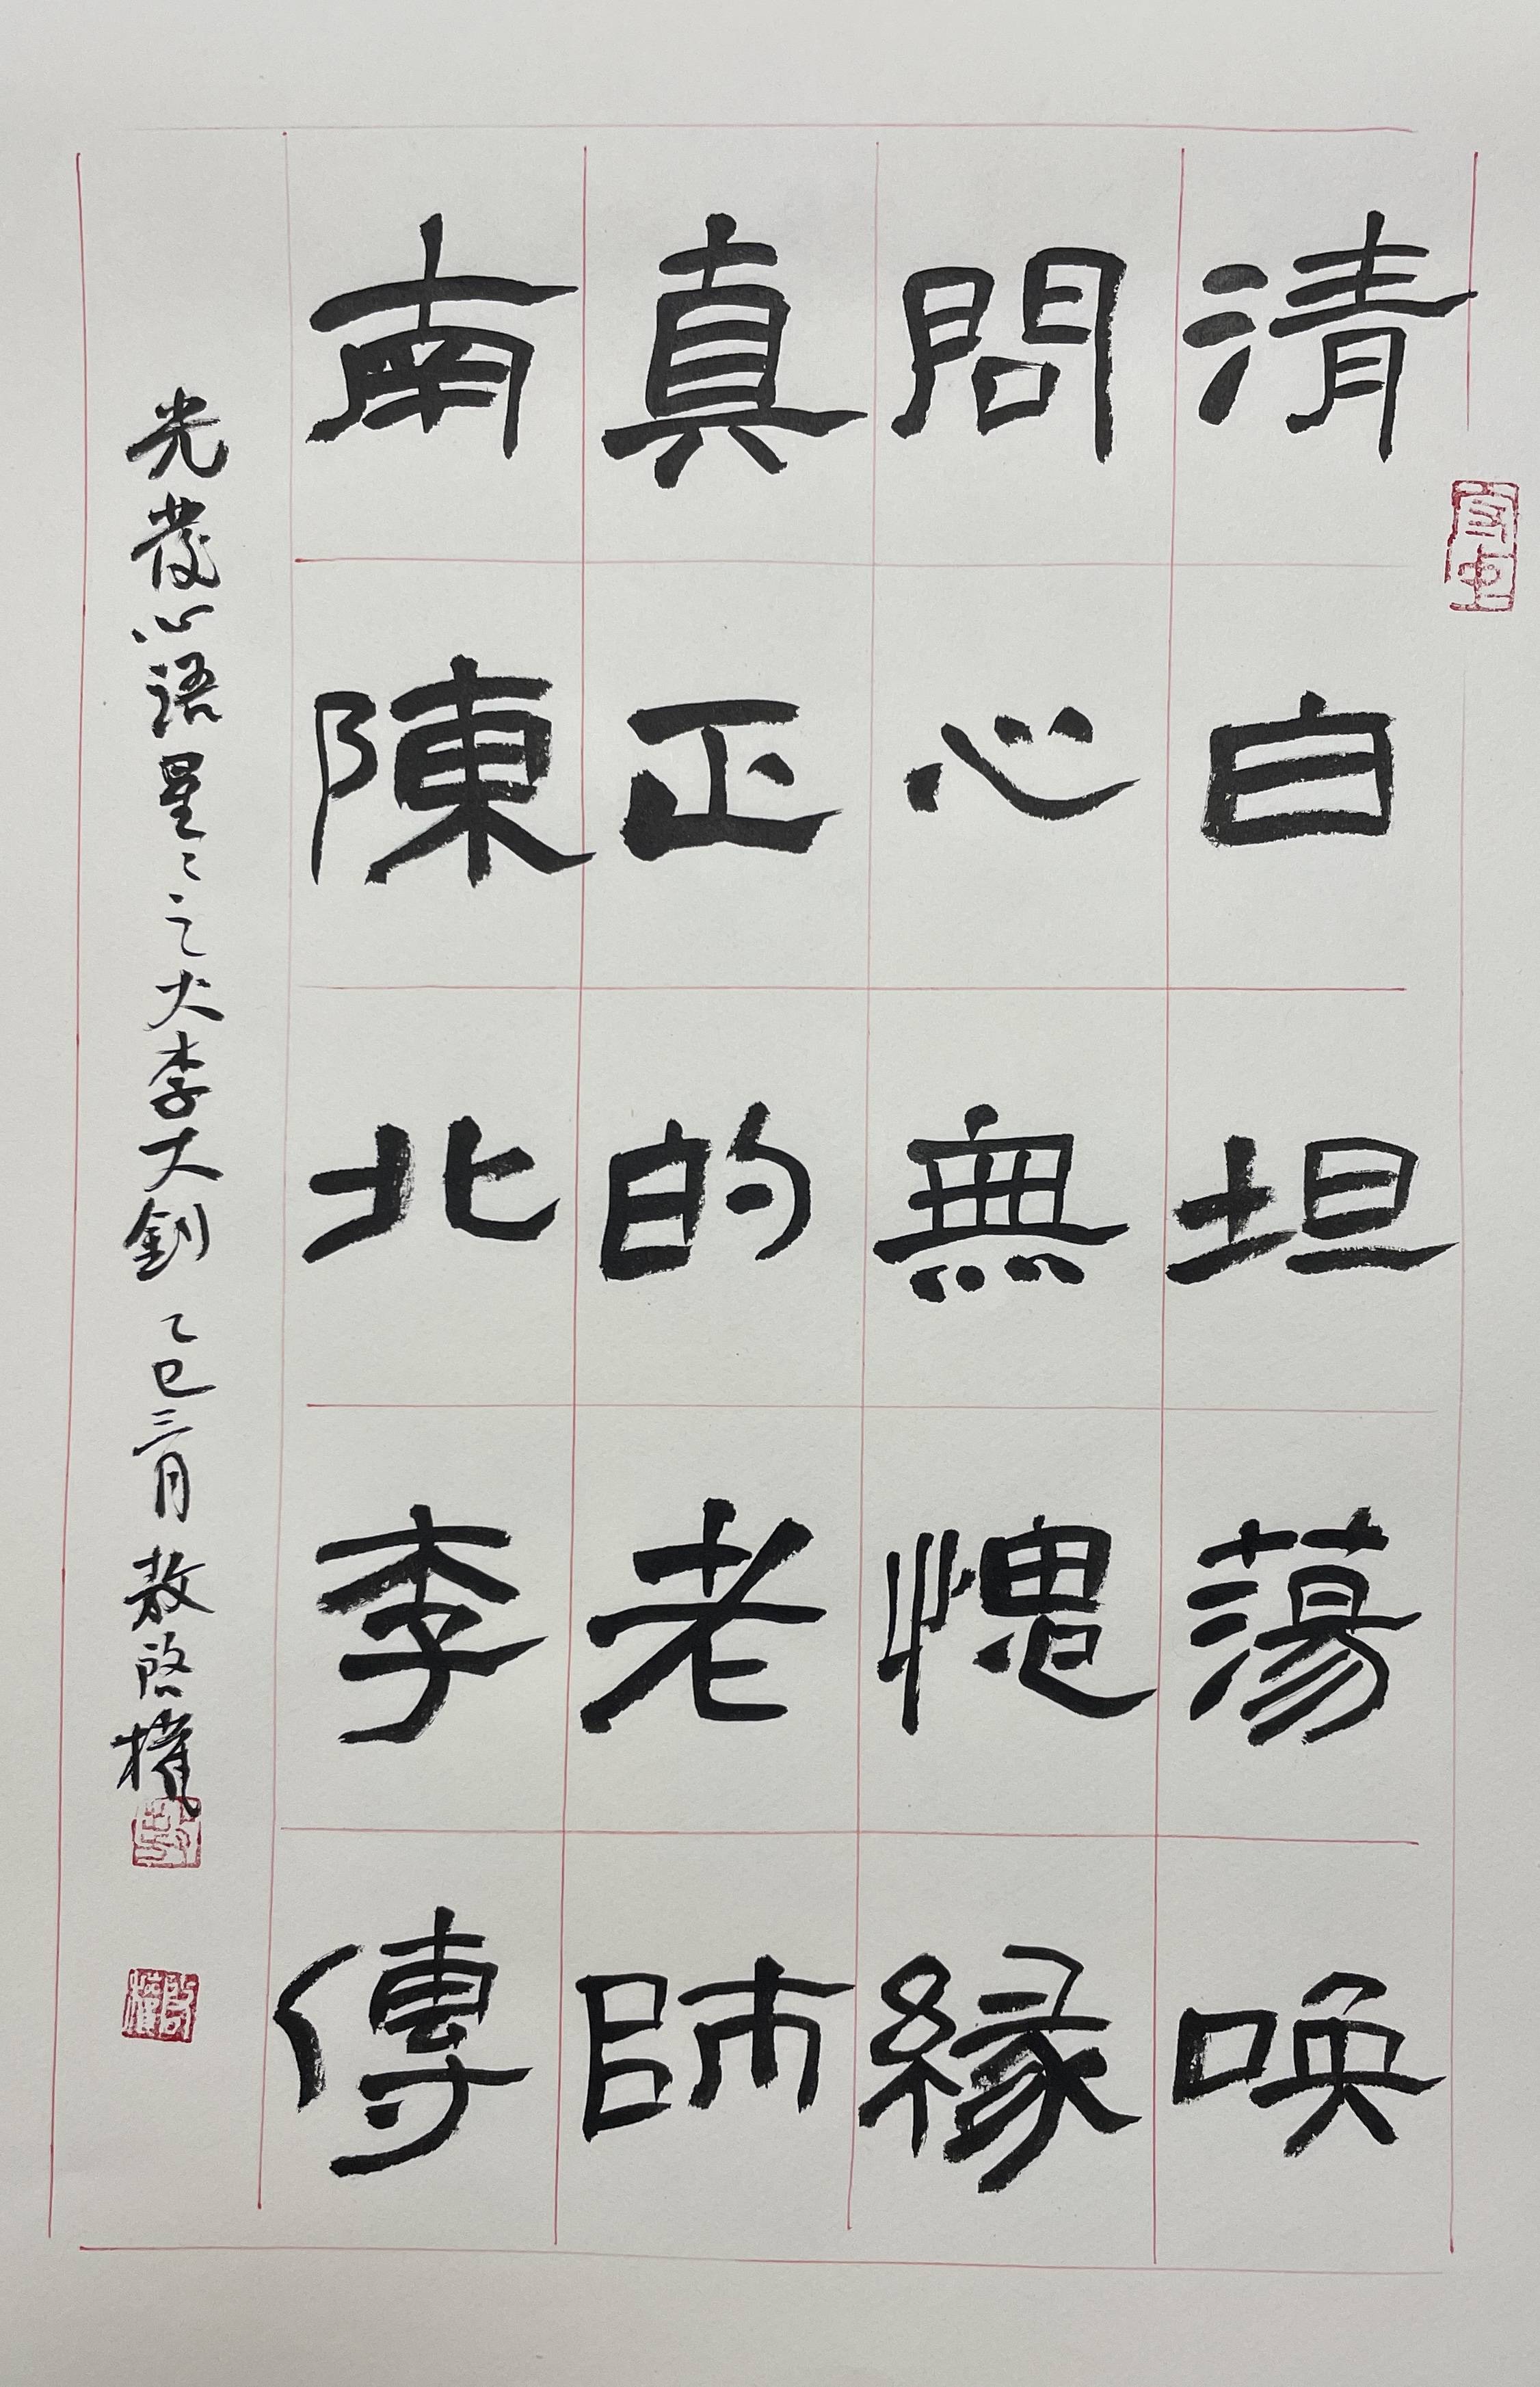 清白坦蕩喚
問心無愧緣
真正的老師
南陳北李傳
光發心語星々之火李大釗 乙巳三月 敖啓權
啓權